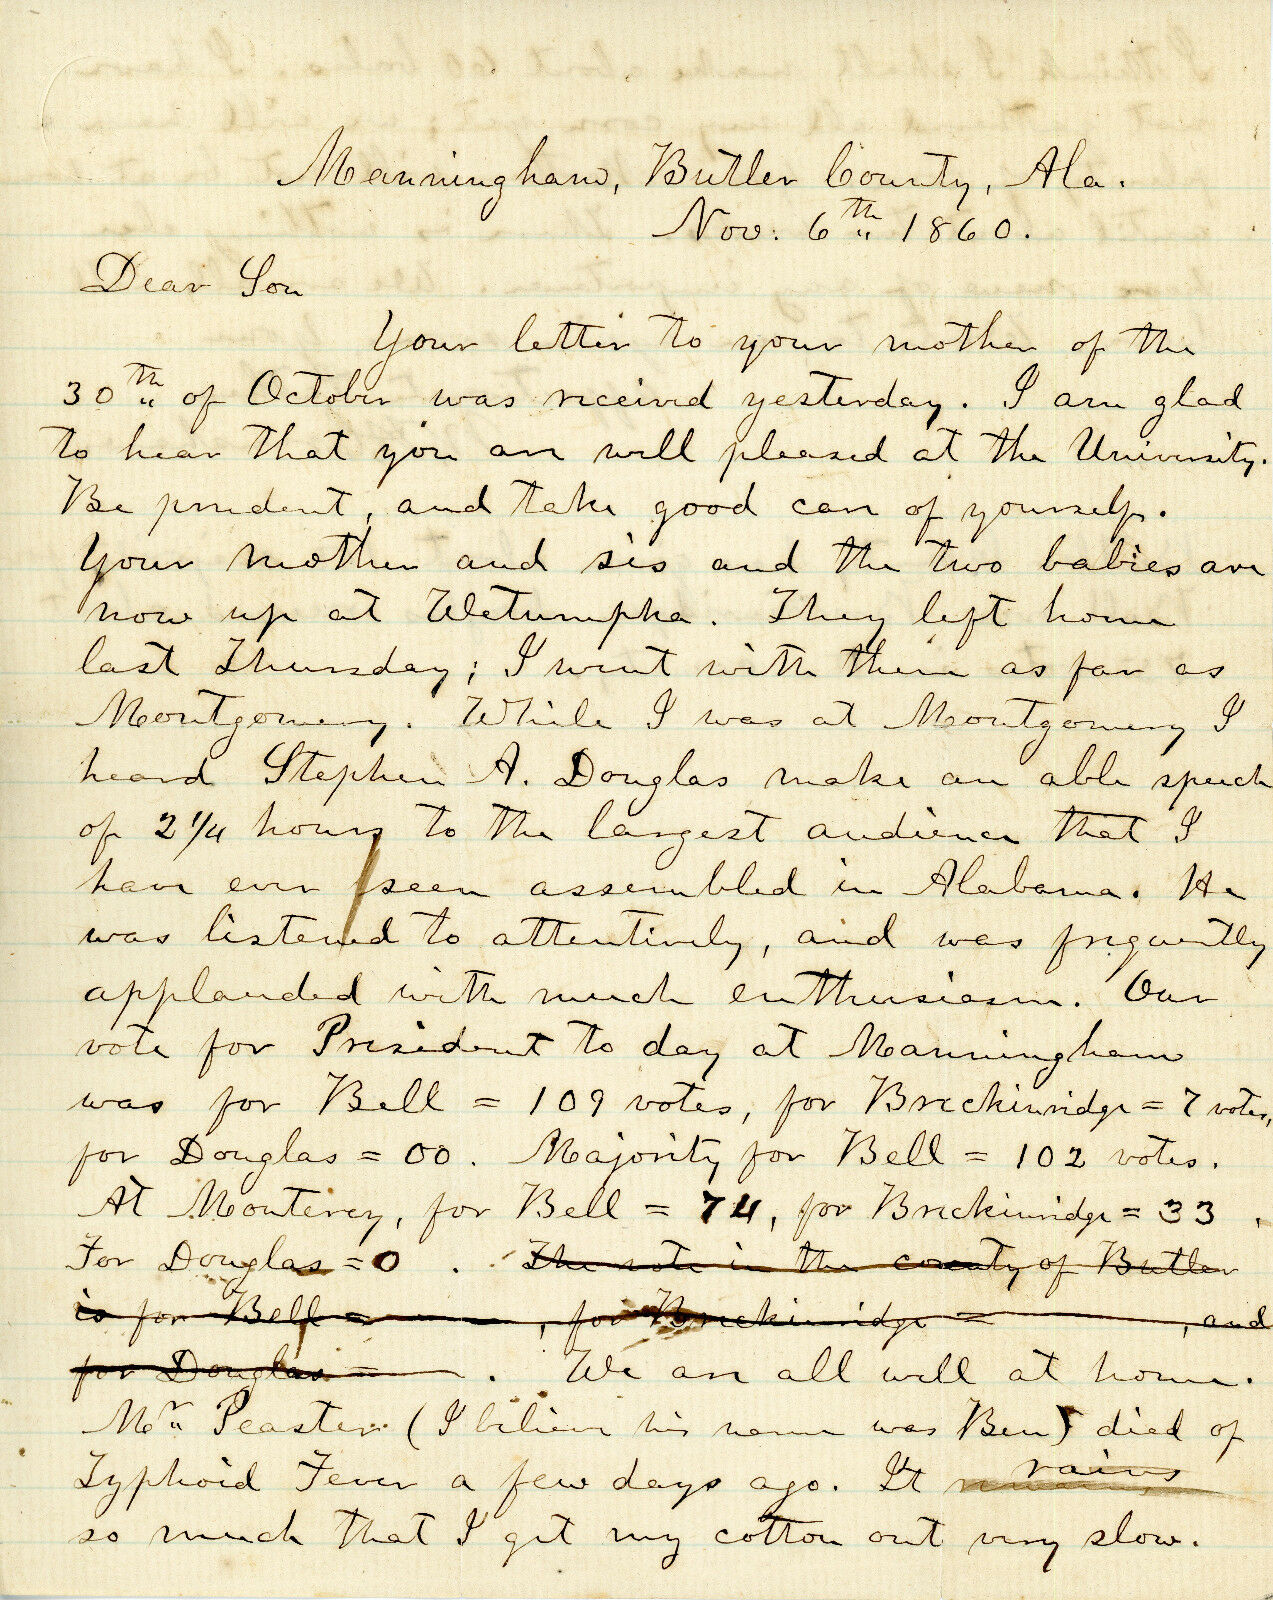 Manningham, Butler County, Ala.
Nov. 6th 1860.
Dear Son
Your letter to your mother of the
30th of October was received yesterday. I am glad
to hear that you are well pleased at the University.
Be prudent, and take good care of yourself.
Your mother and sis and the two babies are
now up at Wetumpka. They left home
last Thursday; I went with them as far as
Montgomery. While I was at Montgomery I
heard Stephen A. Douglas make an able speech
of 2 1/4 hours to the largest audience that I
have ever seen assembled in Alabama. He
was listened to attentively, and was frequently
applauded with much enthusiasm. Our
vote for President to day at Manningham
was for Bell = 109 votes, for Breckinridge = 7 votes,
for Douglas = 00. Majority for Bell = 102 votes.
At Monterey, for Bell = 74, for Breckinridge = 33,
For Douglas = 0. The vote in the county of Butler
is for Bell = , for Breckinridge = , and
for Douglas = . We are all well at home.
Mr Peaster (I believe his name was Ben) died of
Typhoid Fever a few days ago. It rains
so much that I get my cotton out very slow.